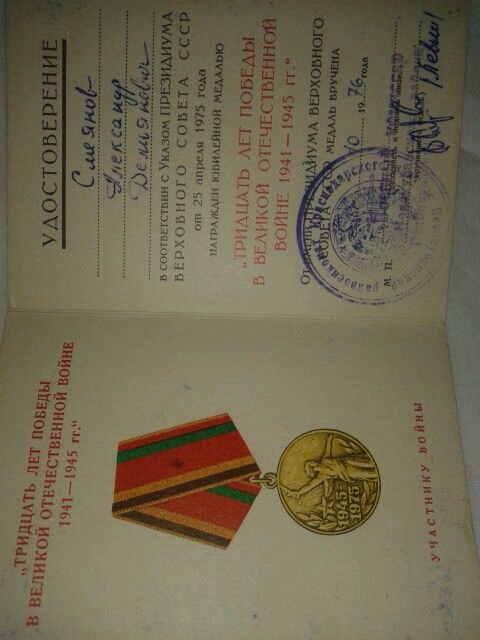 „ТРИДЦАТЬ ЛЕТ ПОБЕДЫ
В ВЕЛИКОЙ ОТЕЧЕСТВЕННОЙ ВОЙНЕ
1941—1945 гг.“
1945
1975
УЧАСТНИКУ ВОЙНЫ
УДОСТОВЕРЕНИЕ
Смеянов
Александр
Демьянович
В СООТВЕТСТВИИ с УКАЗОМ ПРЕЗИДИУМА
ВЕРХОВНОГО СОВЕТА СССР
от 25 апреля 1975 года
НАГРАЖДЕН ЮБИЛЕЙНОЙ МЕДАЛЬЮ
„ТРИДЦАТЬ ЛЕТ ПОБЕДЫ
В ВЕЛИКОЙ ОТЕЧЕСТВЕННОЙ
ВОЙНЕ 1941—1945 гг.“
От ПРЕЗИДИУМА ВЕРХОВНОГО
СОВЕТА МЕДАЛЬ ВРУЧЕНА
19 76 года
М. П.